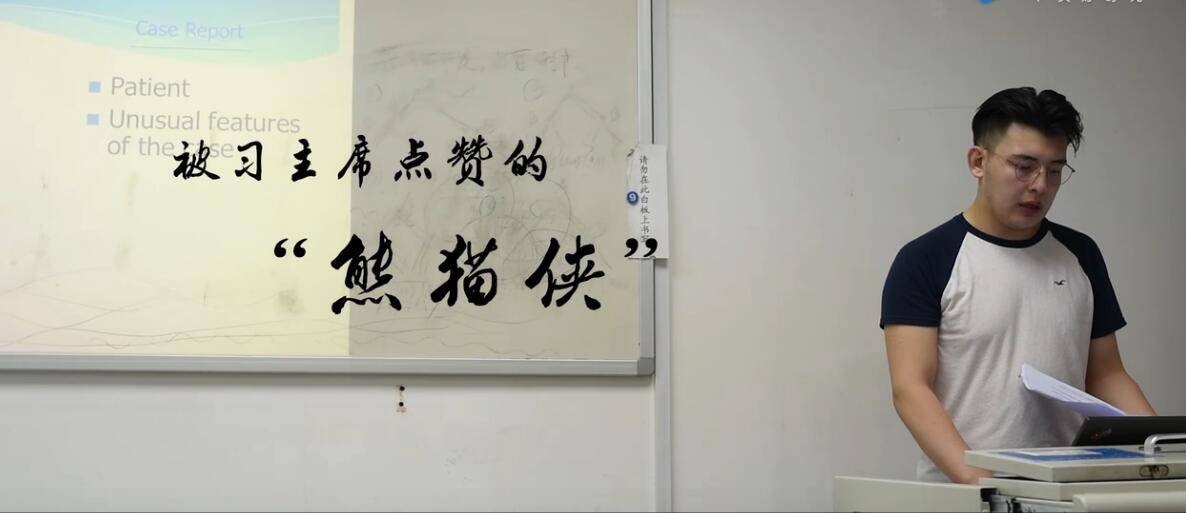 Case Report
Patient
Unusual features
of the case
被习主席点赞的
“熊猫侠”
请勿在此白板上书写